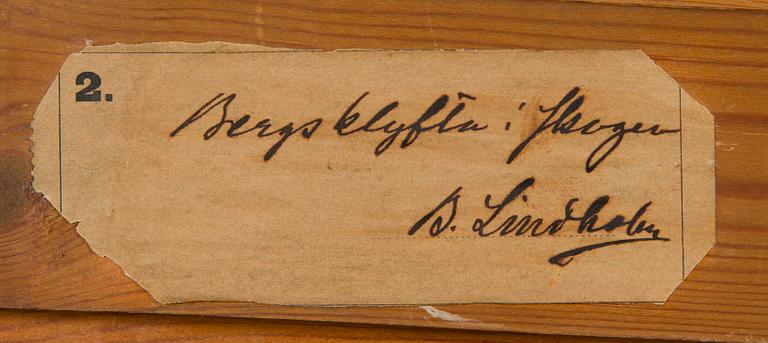 2.
Bergsklyfta i skogen
B. Lindholm